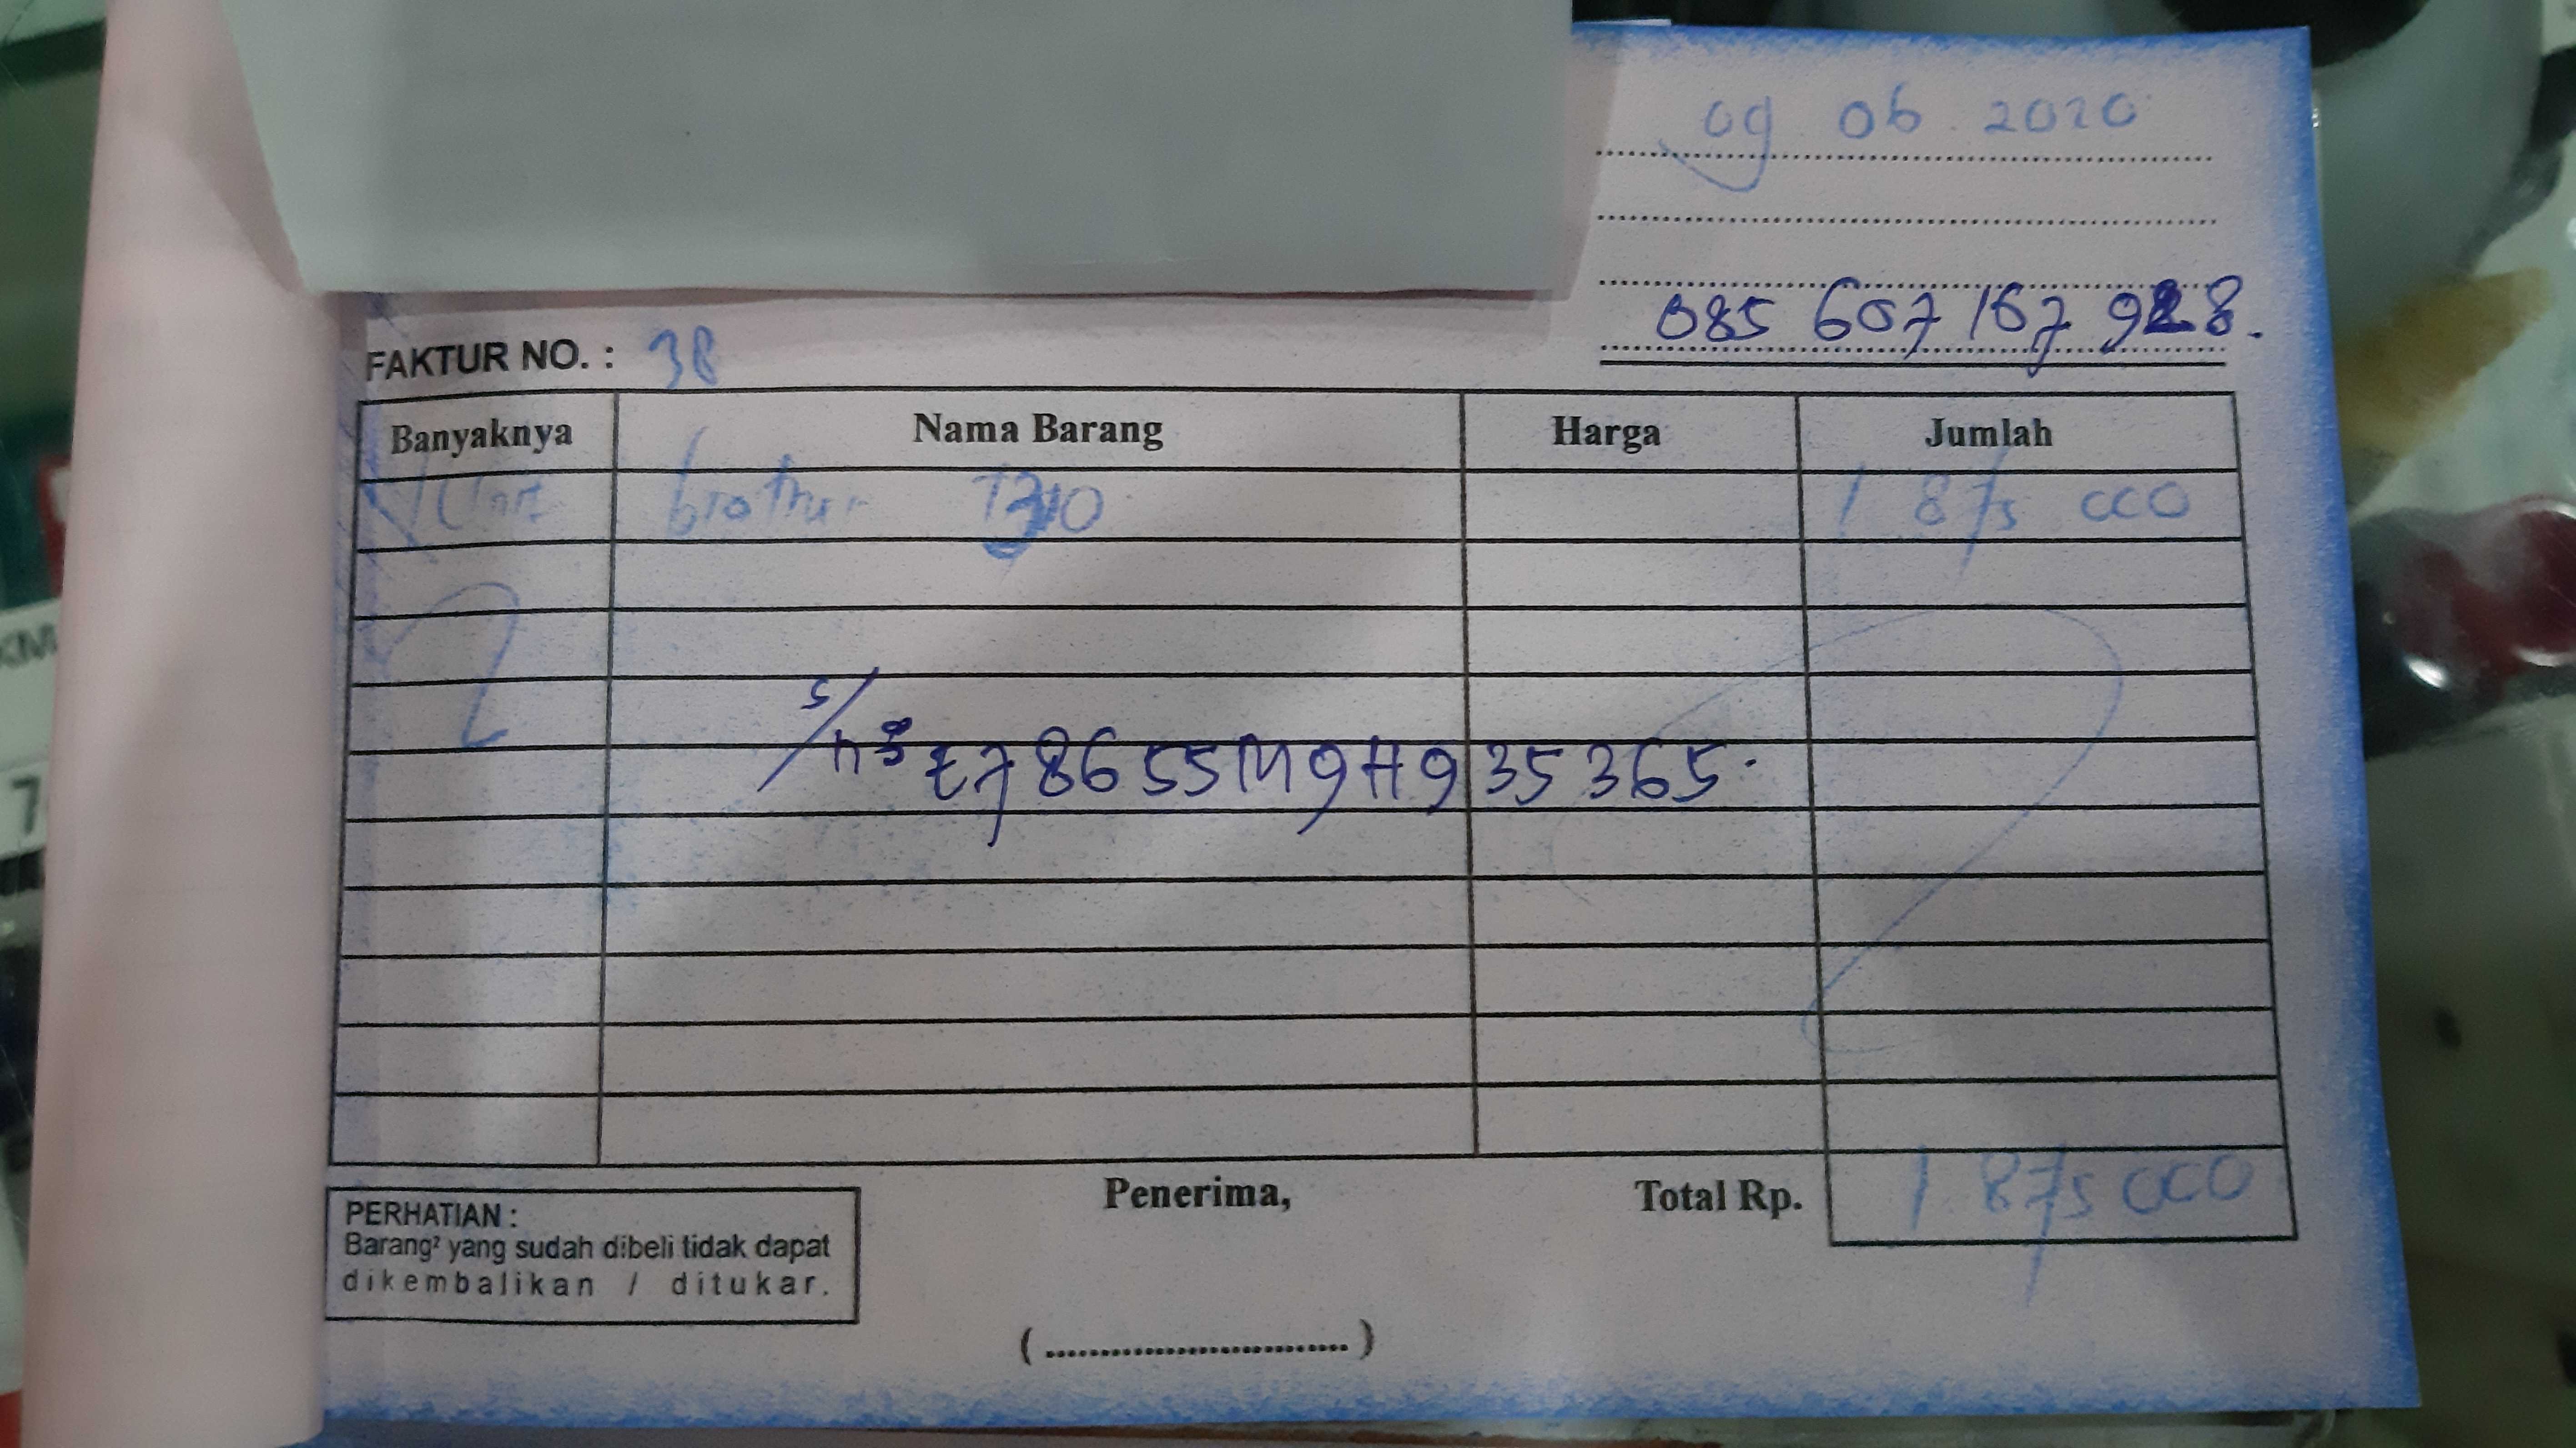 09 06 2020
085 607 167 928.
FAKTUR NO. : 38
Banyaknya Nama Barang Harga Jumlah
1 Unit brother T310 1 875 000
S/
n: E78655M9H935365.
Penerima, Total Rp. 1 875 000
PERHATIAN :
Barang² yang sudah dibeli tidak dapat
dikembalikan / ditukar.
(............................)